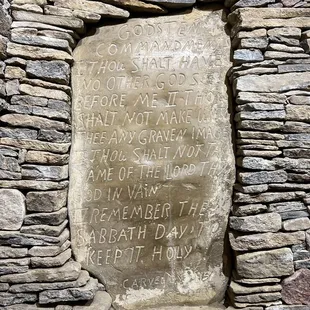 GODS TEN
COMMANDMEN
I THOU SHALT HAVE
NO OTHER GODS
BEFORE ME II THOU
SHALT NOT MAKE UN
THEE ANY GRAVEN IMAGE
THOU SHALT NOT TA
NAME OF THE LORD TH
OD IN VAIN
REMEMBER THE
SABBATH DAY TO
KEEP IT HOLY